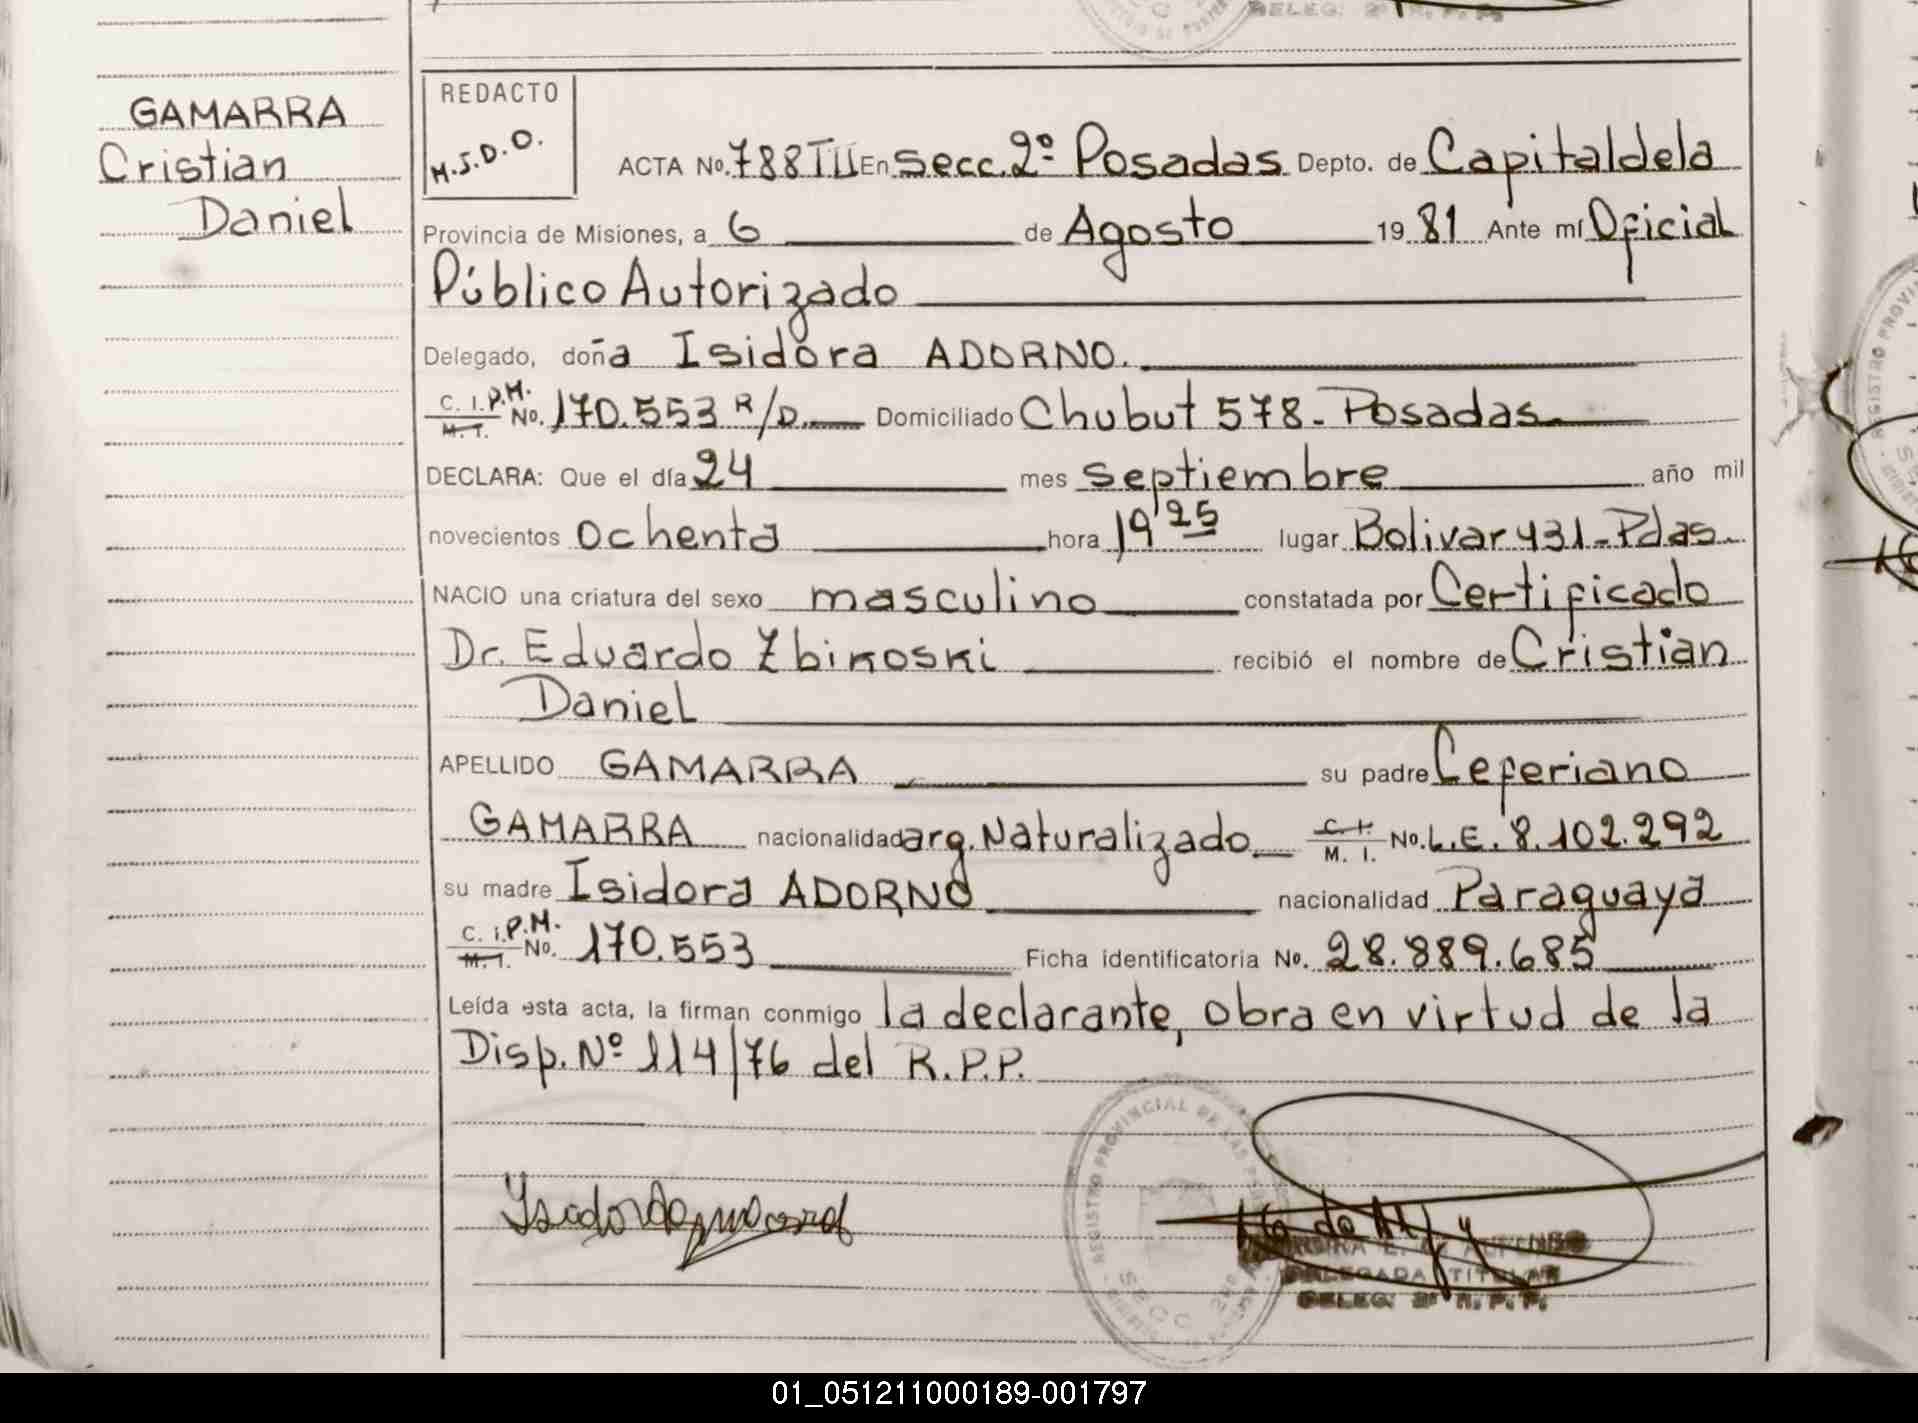 DELEG. 2ª R. P. P.
GAMARRA
Cristian
Daniel
REDACTO
M.J.D.O.
ACTA No. 788 TII En Secc. 2º Posadas Depto. de Capital de la
Provincia de Misiones, a 6 de Agosto 1981 Ante mí Oficial
Público Autorizado
Delegado, doña Isidora ADORNO.
C. I. P.M. M. I. No. 170.553 R/D. Domiciliado Chubut 578 - Posadas
DECLARA: Que el día 24 mes septiembre año mil
novecientos ochenta hora 19'25 lugar Bolivar 431 - Pdas.
NACIO una criatura del sexo masculino constatada por Certificado
Dr. Eduardo Zbikoski recibió el nombre de Cristian
Daniel
APELLIDO GAMARRA su padre Ceferiano
GAMARRA nacionalidad arg. Naturalizado C. I. M. I. No. L.E. 8.102.292
su madre Isidora ADORNO nacionalidad Paraguaya
C. I. P.M. M. I. No. 170.553 Ficha identificatoria No. 28.889.685
Leída esta acta, la firman conmigo la declarante, obra en virtud de la
Disp. Nº 114/76 del R.P.P.
REGISTRO PROVINCIAL DE LAS
SECC 2ª
DELEGADA TITULAR
DELEG. 2ª R. P. P.
01_051211000189-001797